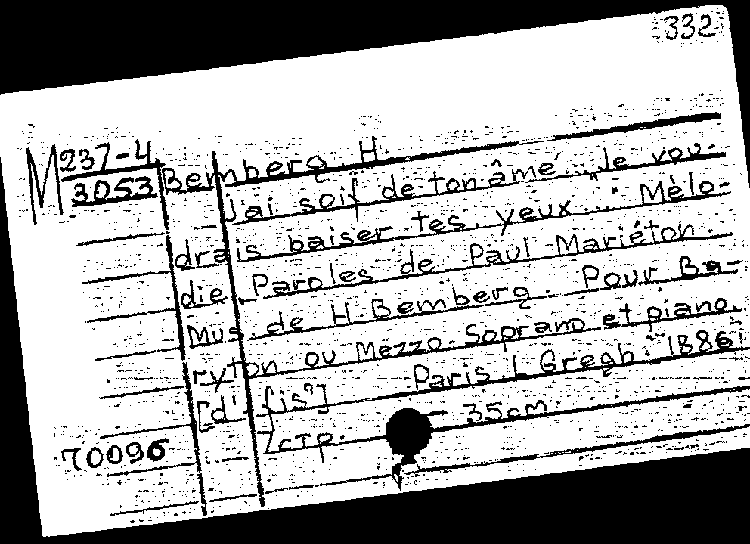 332
M 237-4
3053
Bemberg H.
J'ai soif de ton âme „Je vou-
drais baiser tes yeux..." Mélo-
die. Paroles de Paul Mariéton.
Mus. de H. Bemberg. Pour Ba-
ryton ou Mezzo-Soprano et piano.
[d'-fis²] Paris L Gregh. 1886
7 стр. — 35cm.
70096